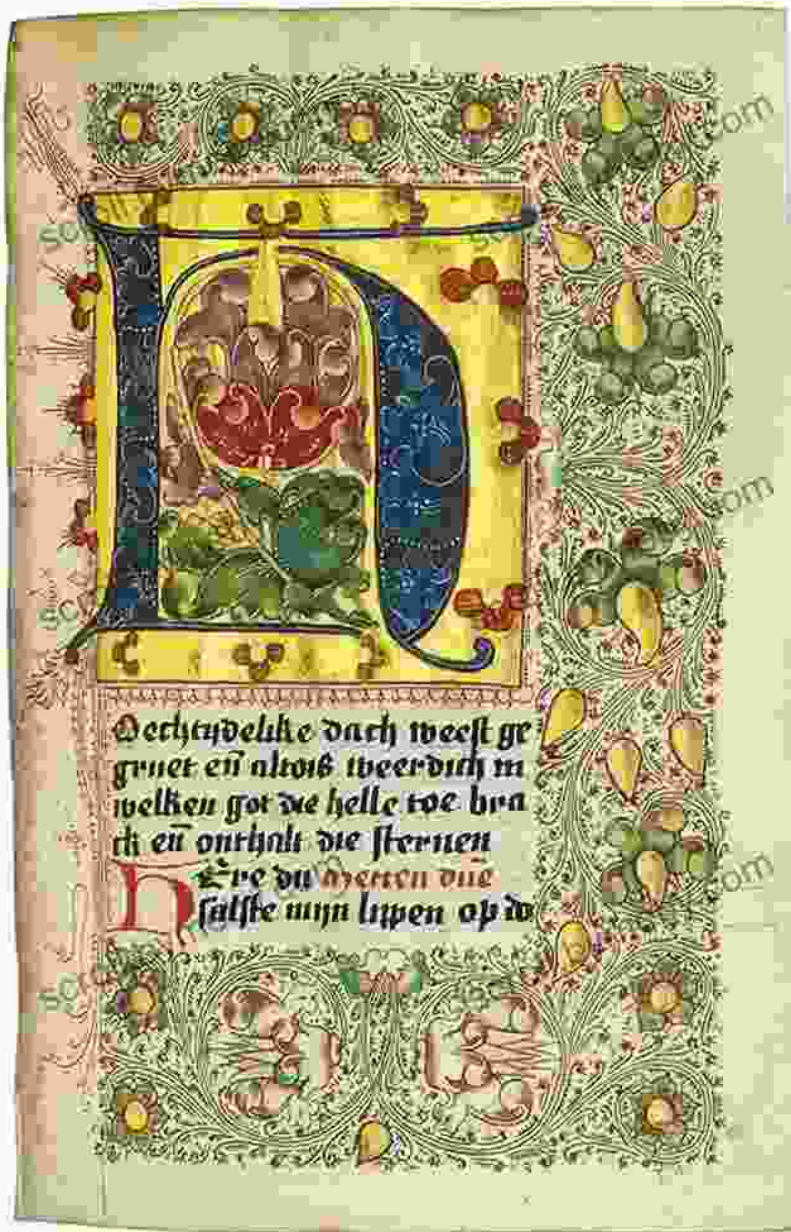 HOechtydelike dach weest ge
gruet en̄ altois weerdich in
welken got die helle toe bra
ck en̄ onthalt die sternen
HEre du Metten
salste mijn lipen op do
.com
.com
.com